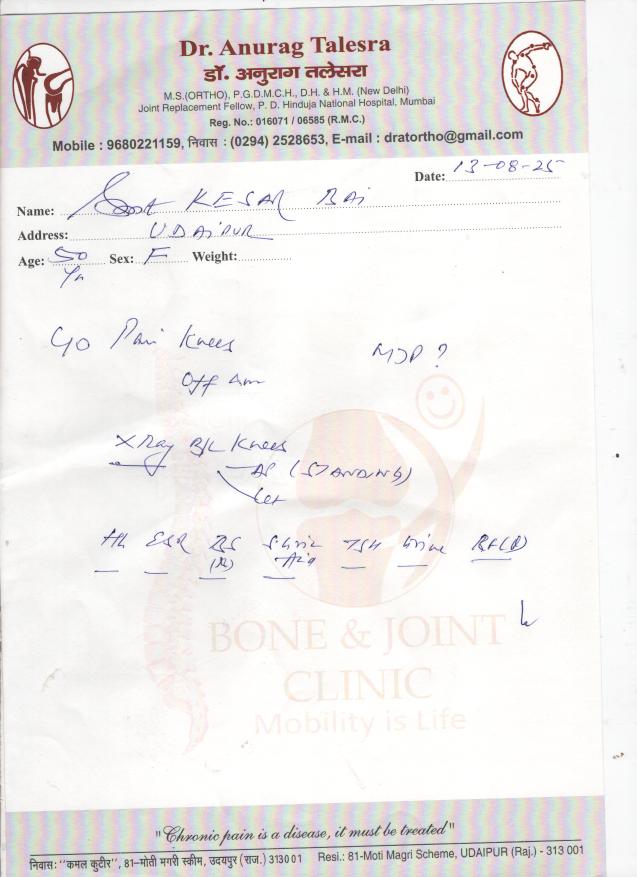 Dr. Anurag Talesra
डॉ. अनुराग तलेसरा
M.S.(ORTHO), P.G.D.M.C.H., D.H. & H.M. (New Delhi)
Joint Replacement Fellow, P. D. Hinduja National Hospital, Mumbai
Reg. No.: 016071 / 06585 (R.M.C.)
Mobile : 9680221159, निवास : (0294) 2528653, E-mail : dratortho@gmail.com
Date: 13-08-25
Name: KESAR BAI
Address: UDAIPUR
Age: 50 Yr Sex: F Weight:
C/O Pain Knees
Off
X Ray B/L Knees
AP (STANDING)
Lat
Hb ESR BS (R) S Uric Acid TSH Urine
BONE & JOINT
CLINIC
Mobility is Life
"Chronic pain is a disease, it must be treated"
निवास: "कमल कुटीर", 81-मोती मगरी स्कीम, उदयपुर (राज.) 313001 Resi.: 81-Moti Magri Scheme, UDAIPUR (Raj.) - 313 001